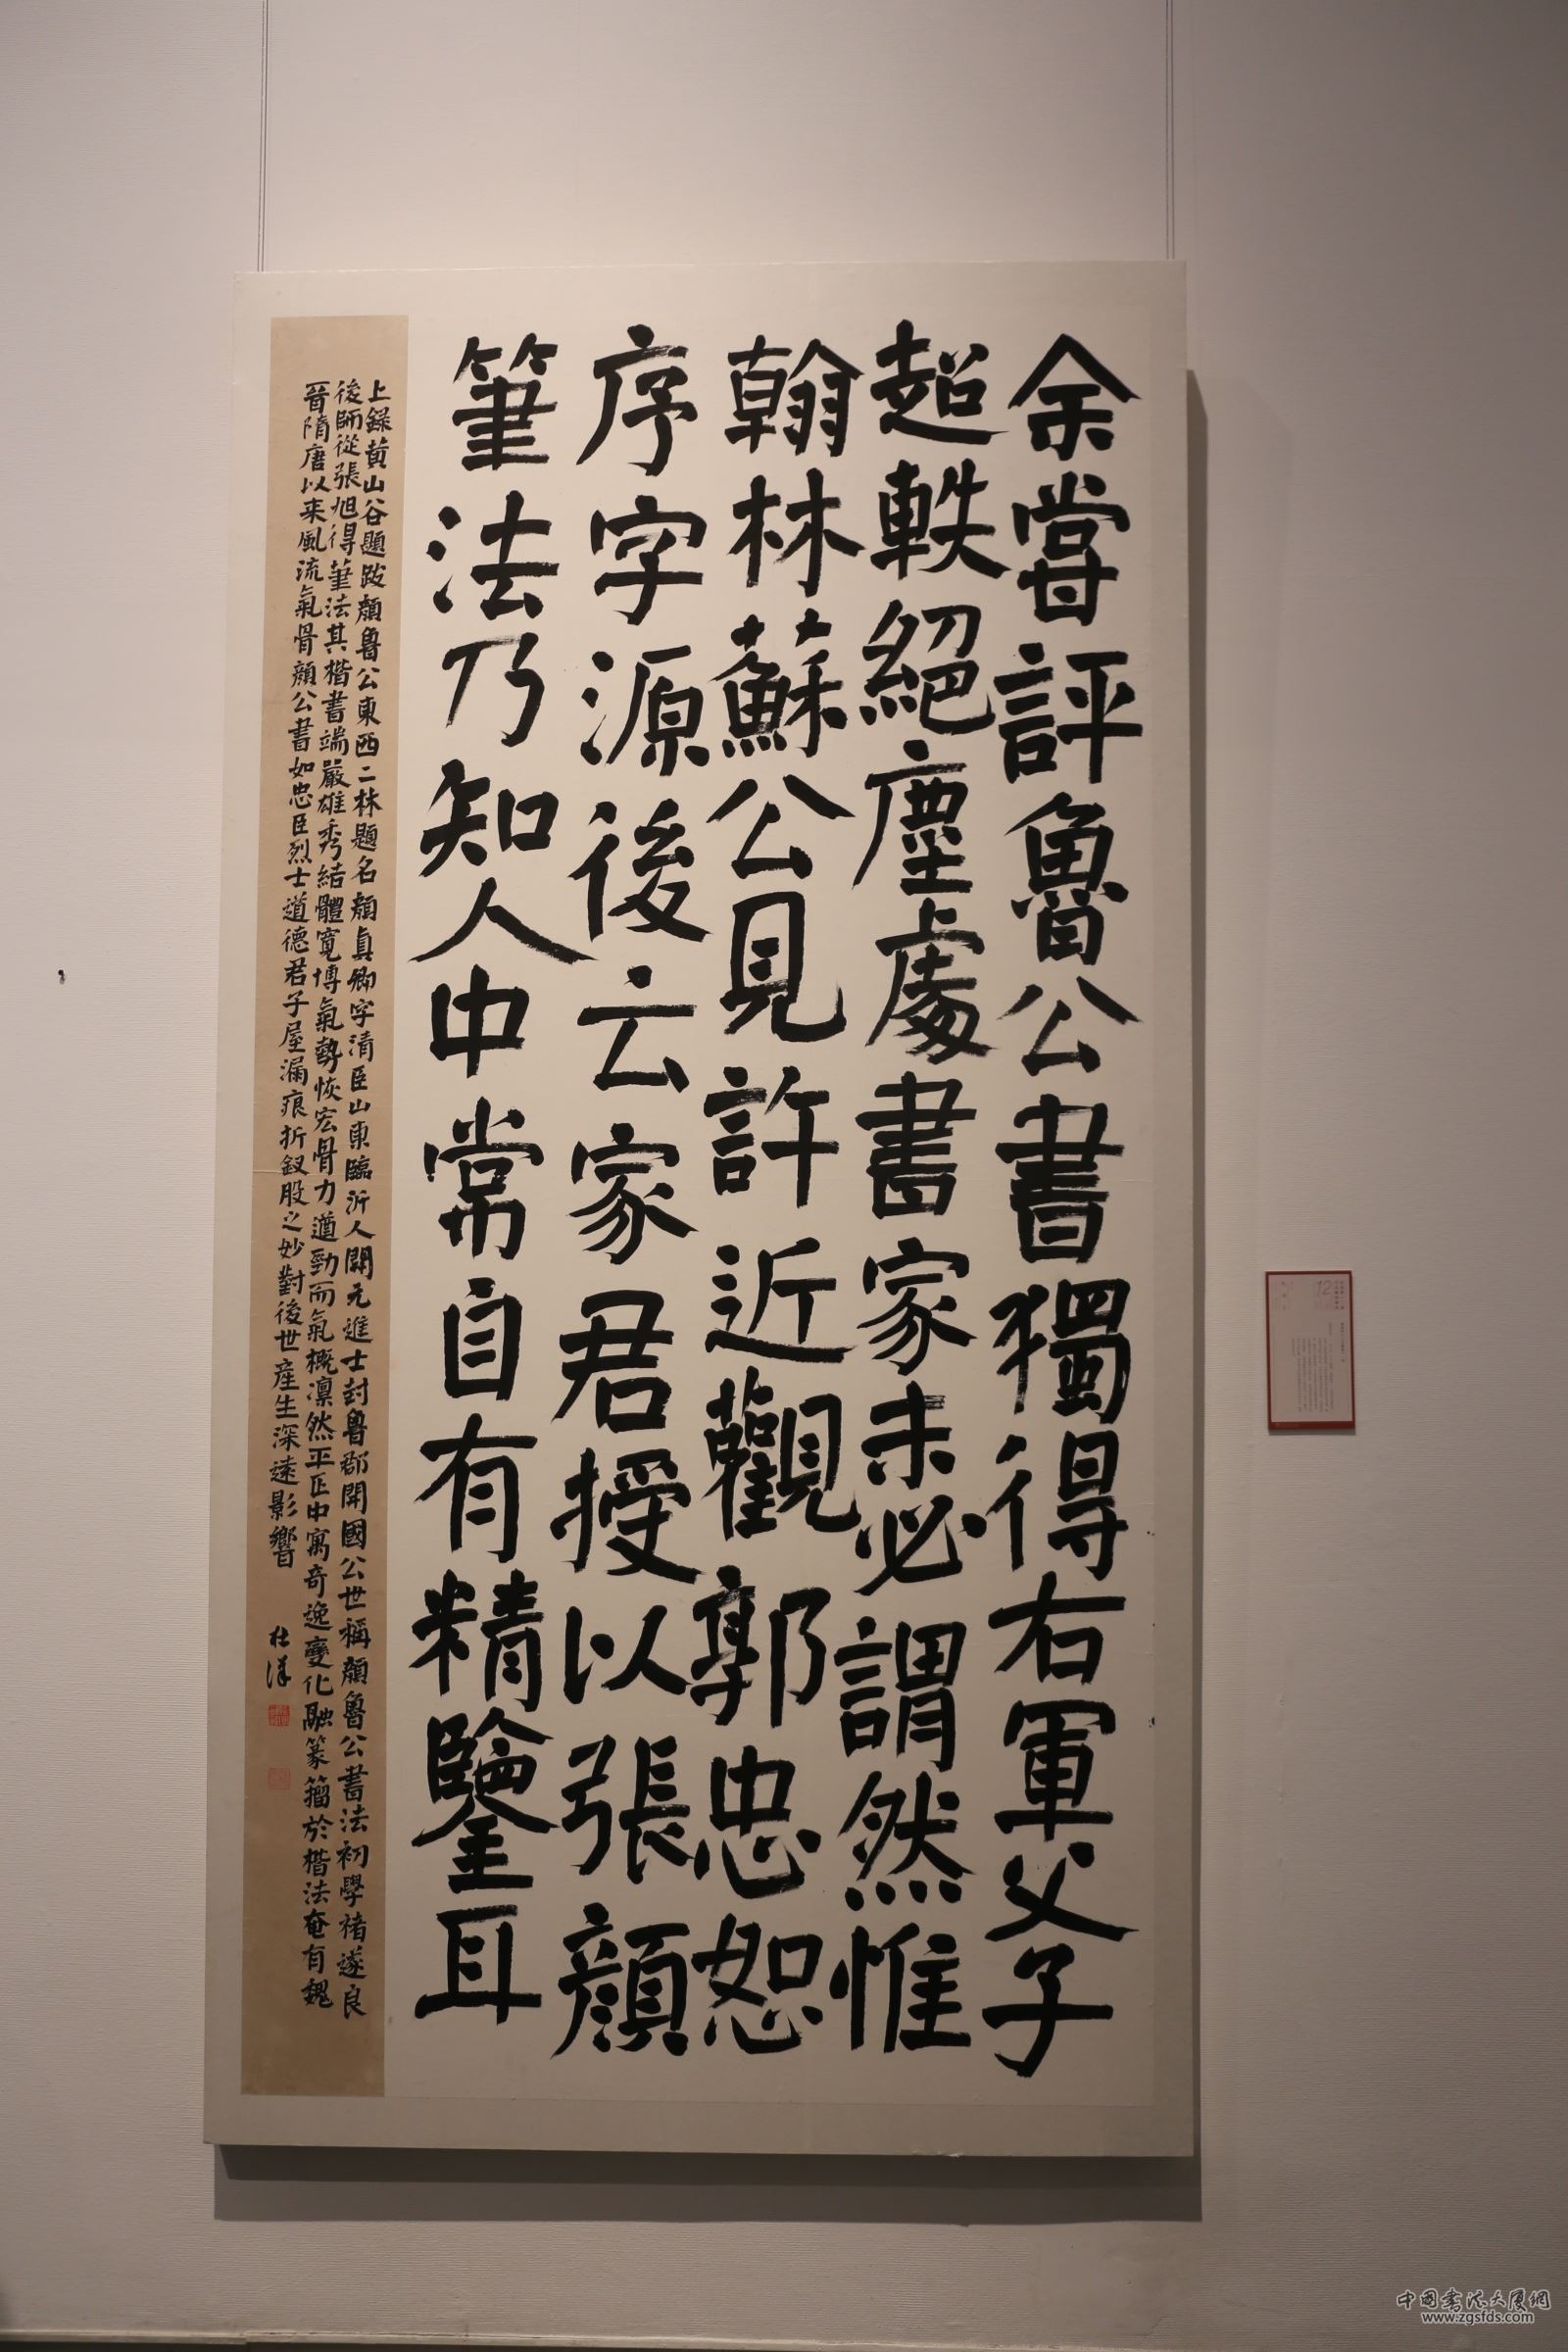 余嘗評魯公書獨得右軍父子
超軼絕塵處書家未必謂然惟
翰林蘇公見許近觀郭忠恕
序字源後云家君授以張顏
筆法乃知人中常自有精鑒耳
上錄黃山谷題跋顏魯公東西二林題名顏真卿字清臣山東臨沂人開元進士封魯郡開國公世稱顏魯公書法初學褚遂良
後師從張旭得筆法其楷書端嚴雄秀結體寬博氣勢恢宏骨力遒勁而氣概凜然平正中寓奇逸變化融篆籀於楷法奄有魏
晉隋唐以來風流氣骨顏公書如忠臣烈士道德君子屋漏痕折釵股之妙對後世產生深遠影響
12
中国书法大厦網
www.zgsfds.com